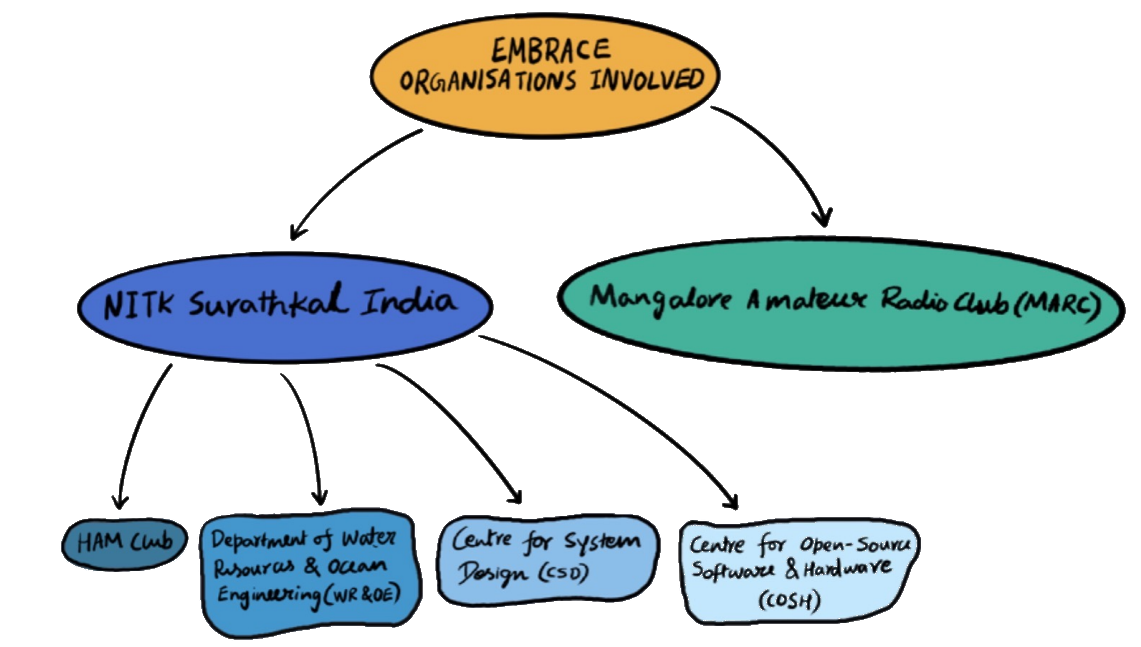 EMBRACE
ORGANISATIONS INVOLVED
NITK Surathkal India
Mangalore Amateur Radio Club (MARC)
HAM Club
Department of Water
Resources & Ocean
Engineering (WR & OE)
Centre for System
Design (CSD)
Centre for Open-Source
Software & Hardware
(COSH)